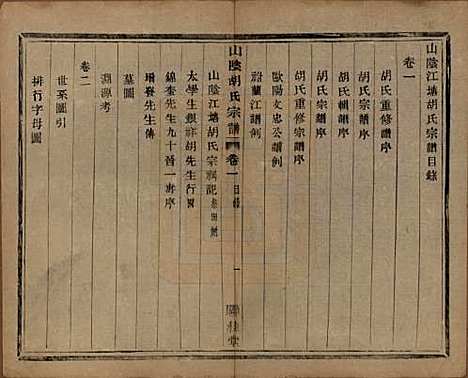 山陰江塘胡氏宗譜目錄
卷一
胡氏重修譜序
胡氏輯譜序
胡氏宗譜序
胡氏重修宗譜序
歐陽文忠公譜例
蔚蘭江譜例
山陰胡氏宗譜 卷一 目錄 一
山陰江塘胡氏宗祠記
太學生銀胡先生行
錦春先生九十晉一壽序
先生傳
墓圖
淵源考
卷二
世系圖引
排行字母圖